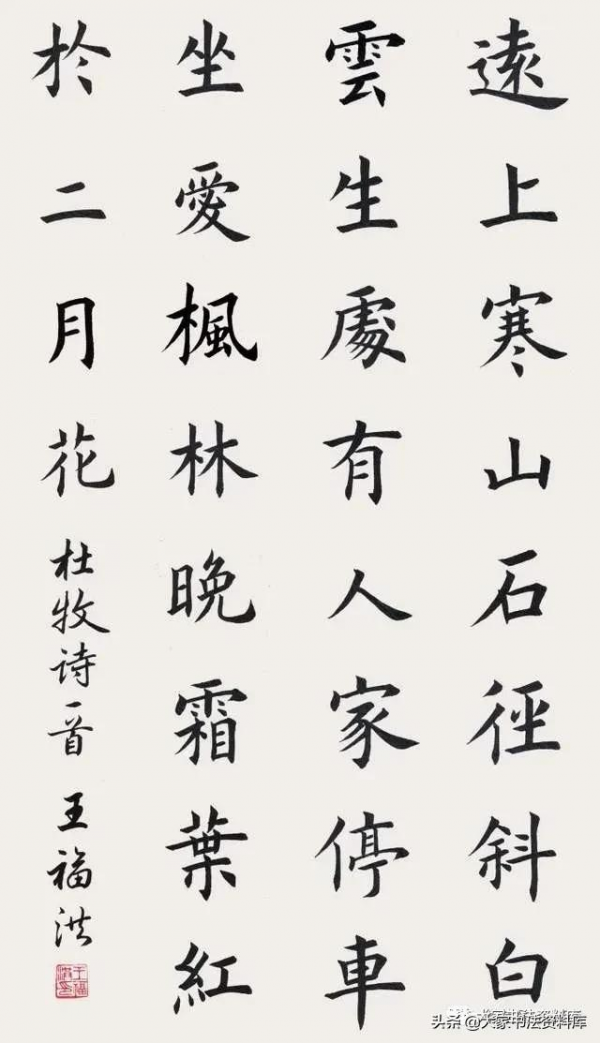 遠上寒山石徑斜白
雲生處有人家停車
坐愛楓林晚霜葉紅
於二月花
杜牧诗一首 王福洪
王福洪印
头条 @大家书法资料库